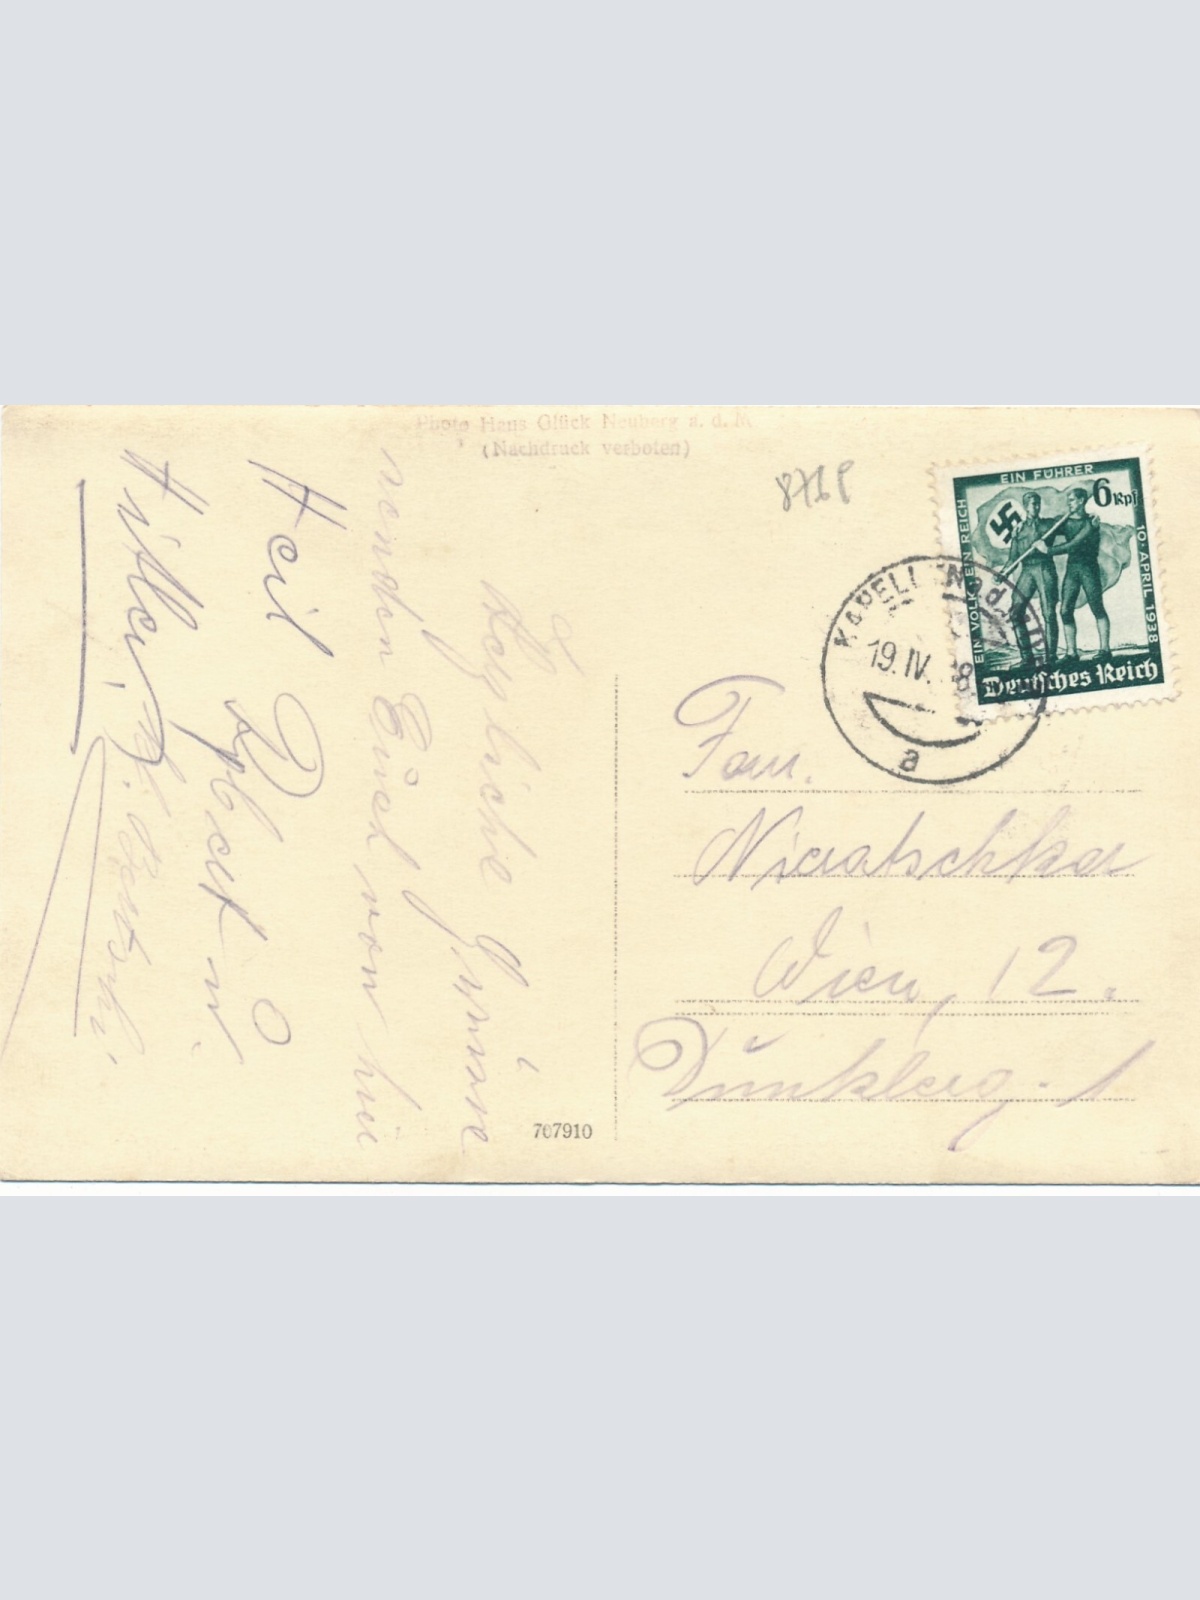 Photo Hans Glück Neuberg a. d. M
(Nachdruck verboten)
EIN VOLK EIN REICH
EIN FÜHRER
10. APRIL 1938
6 Rpf
Deutsches Reich
KAPELLEN
19.IV. 8
a
Herzliche Grüsse
senden Euch von hier
Heil
Hitler!
Fam.
Wien, 12.
707910